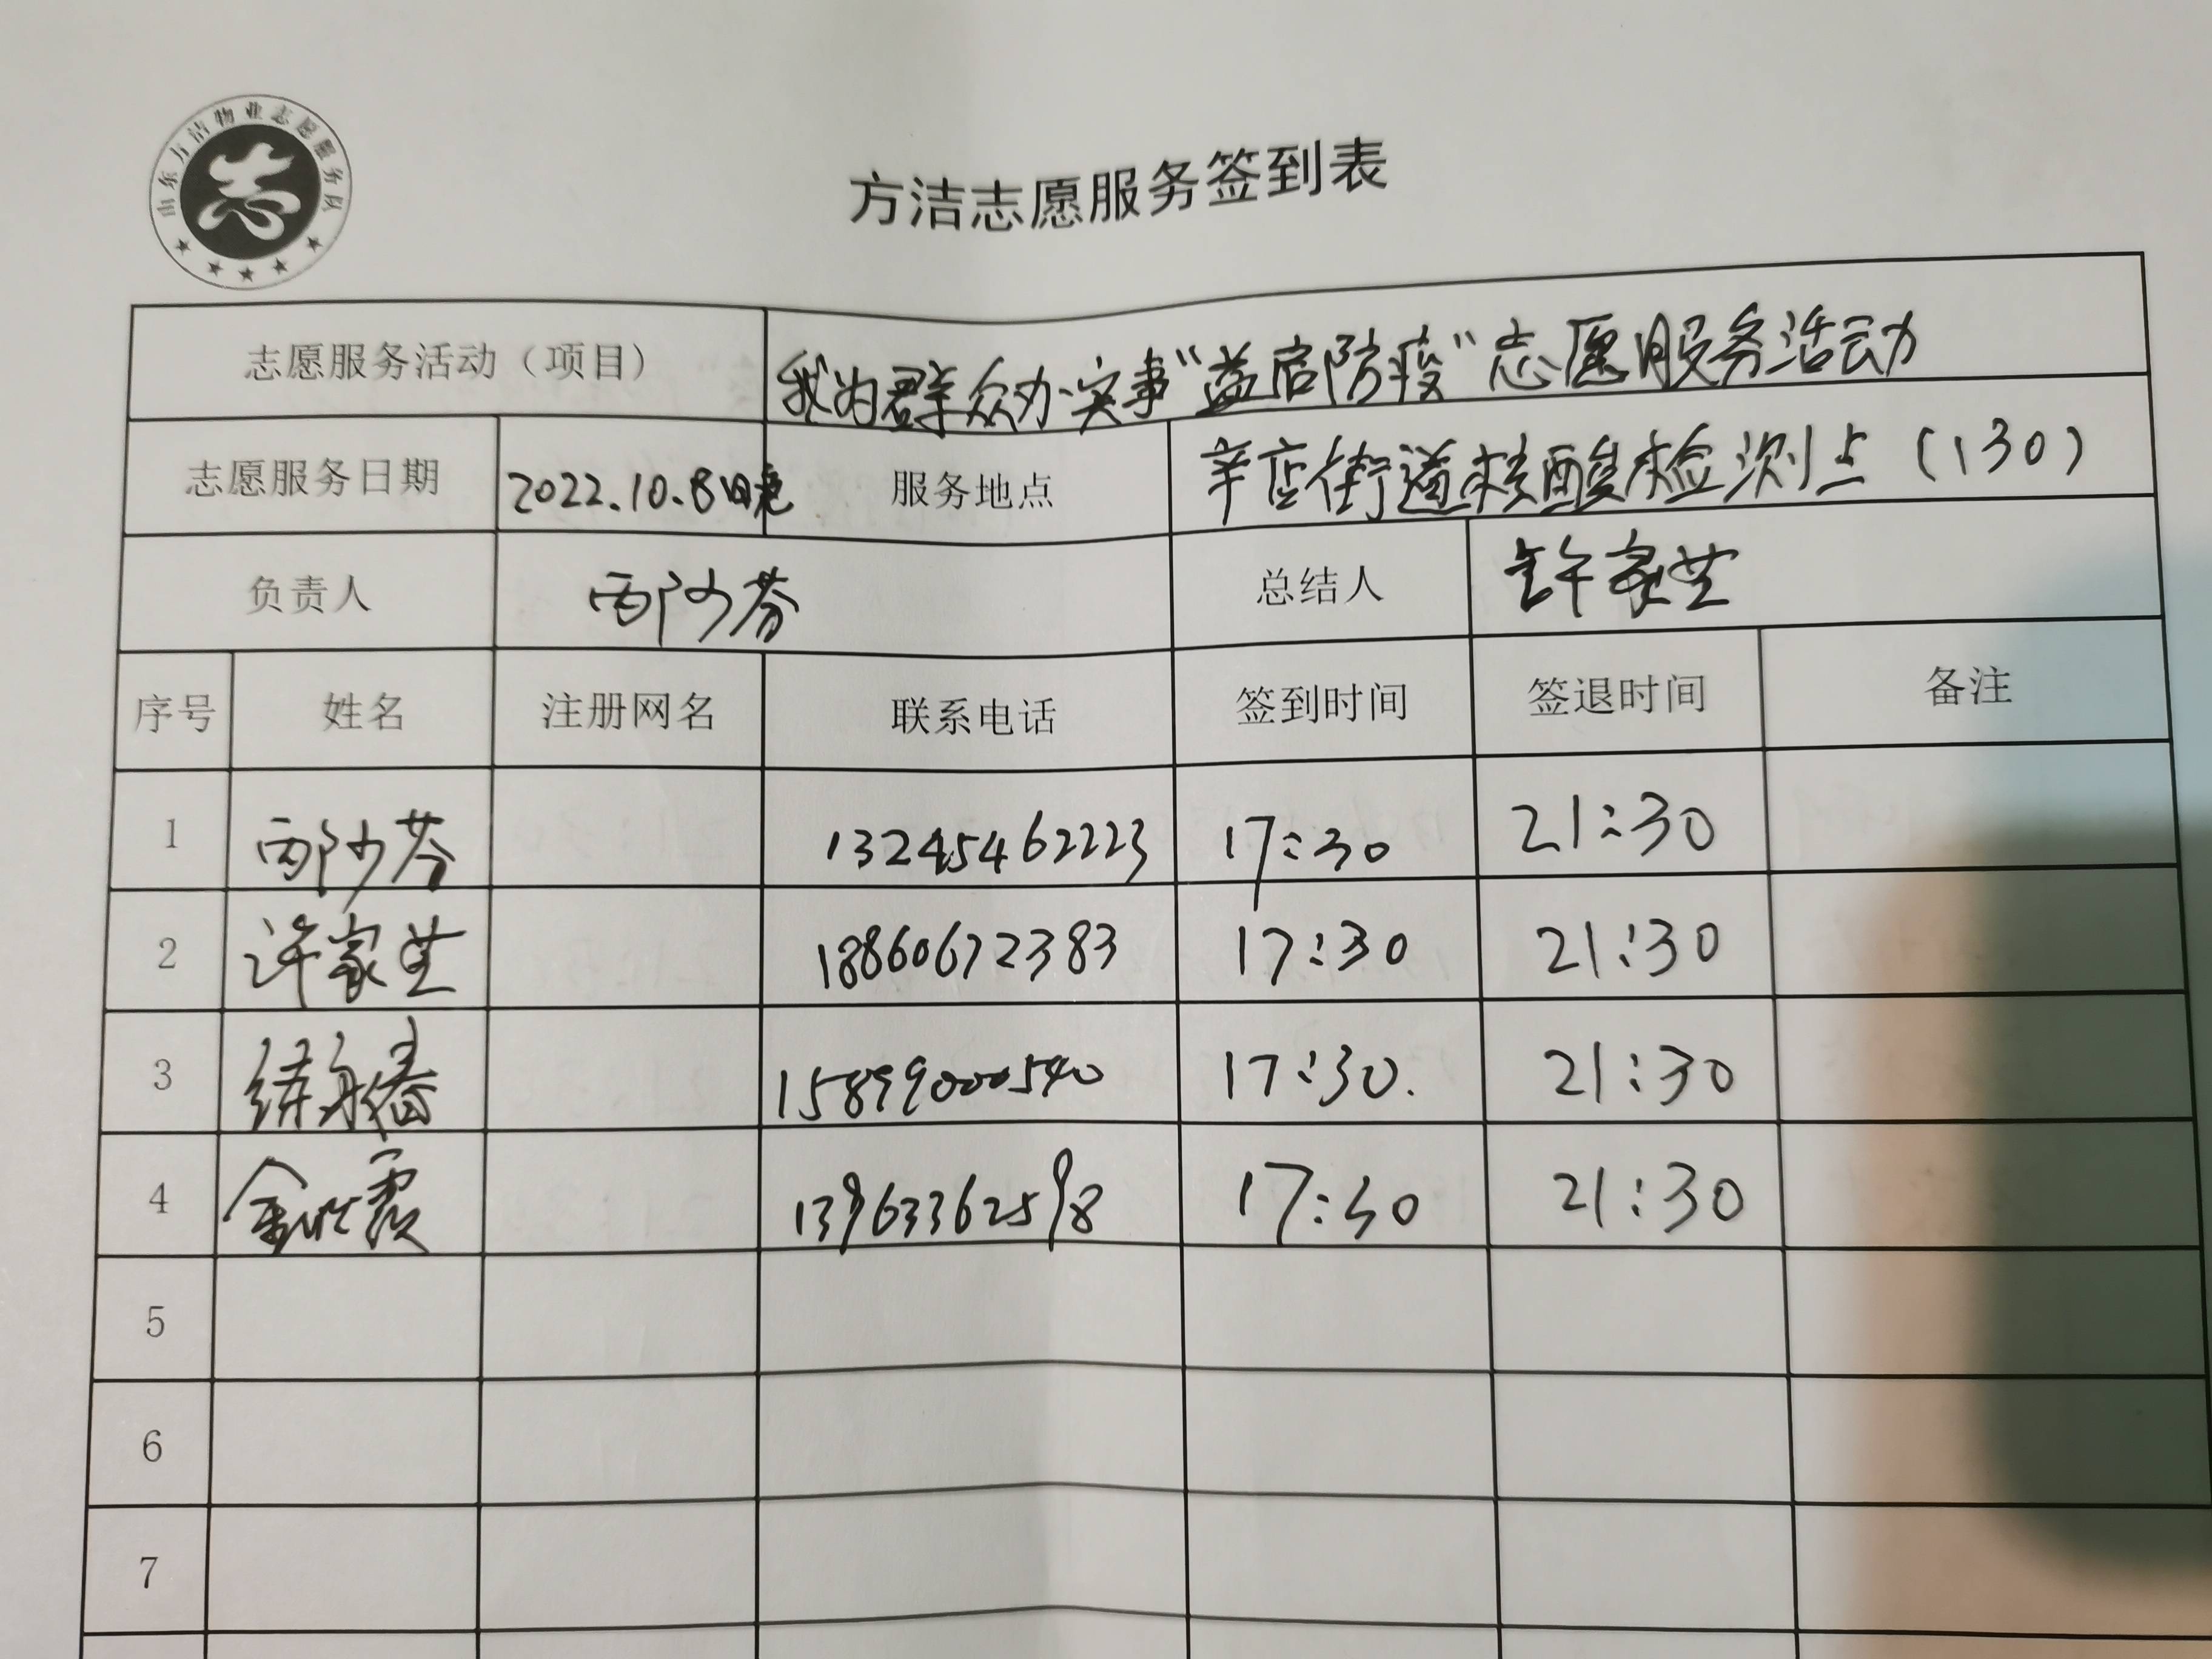 山东方洁物业志愿服务队
方洁志愿服务签到表
志愿服务活动（项目） 我为群众办实事“益启防疫”志愿服务活动
志愿服务日期 2022.10.8日晚 服务地点 辛店街道核酸检测点（130）
负责人 邴少芬 总结人 许家芝
序号 姓名 注册网名 联系电话 签到时间 签退时间 备注
1 邴少芬 13245462223 17:30 21:30
2 许家芝 18860672383 17:30 21:30
3 15899000540 17:30. 21:30
4 13963362598 17:30 21:30
5
6
7